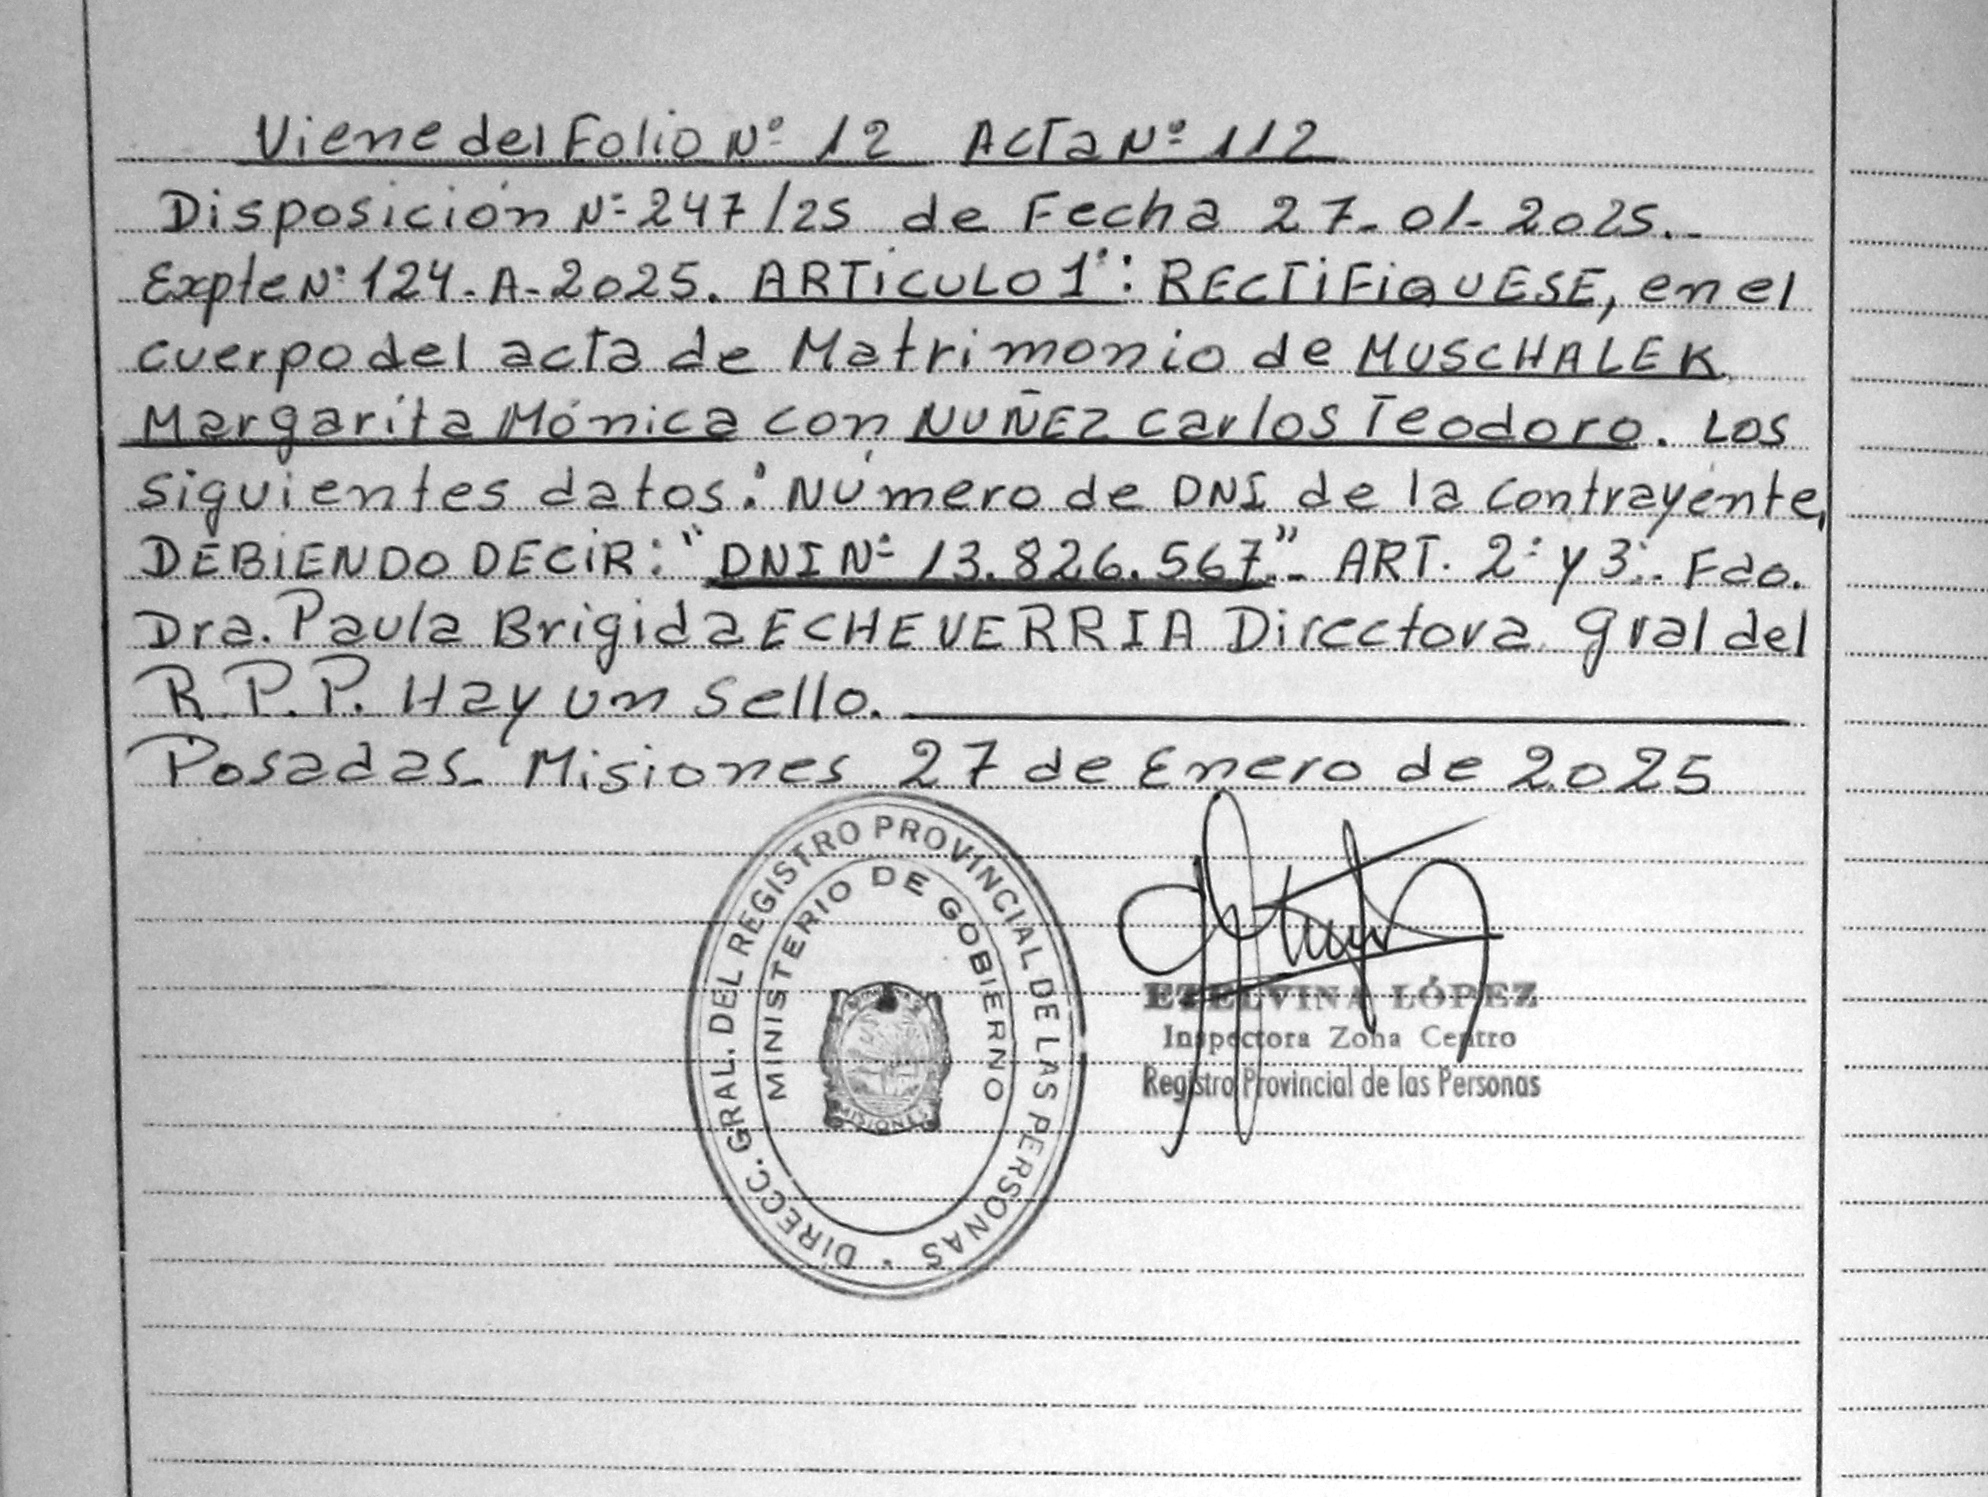 Viene del Folio Nº 12 Acta Nº 112
Disposición Nº 247/25 de Fecha 27-01-2025.-
Expte Nº 124-A-2025. ARTICULO 1º: RECTIFIQUESE, en el
cuerpo del acta de Matrimonio de MUSCHALEK
Margarita Mónica con NUÑEZ Carlos Teodoro. Los
siguientes datos: Número de DNI de la contrayente,
DEBIENDO DECIR: "DNI Nº 13.826.567"- ART. 2º y 3º. Fdo.
Dra. Paula Brigida ECHEVERRIA Directora gral del
R.P.P. Hay un sello.
Posadas- Misiones 27 de Enero de 2025
DIRECC. GRAL. DEL REGISTRO PROVINCIAL DE LAS PERSONAS
MINISTERIO DE GOBIERNO
MISIONES
ETELVINA LÓPEZ
Inspectora Zona Centro
Registro Provincial de las Personas